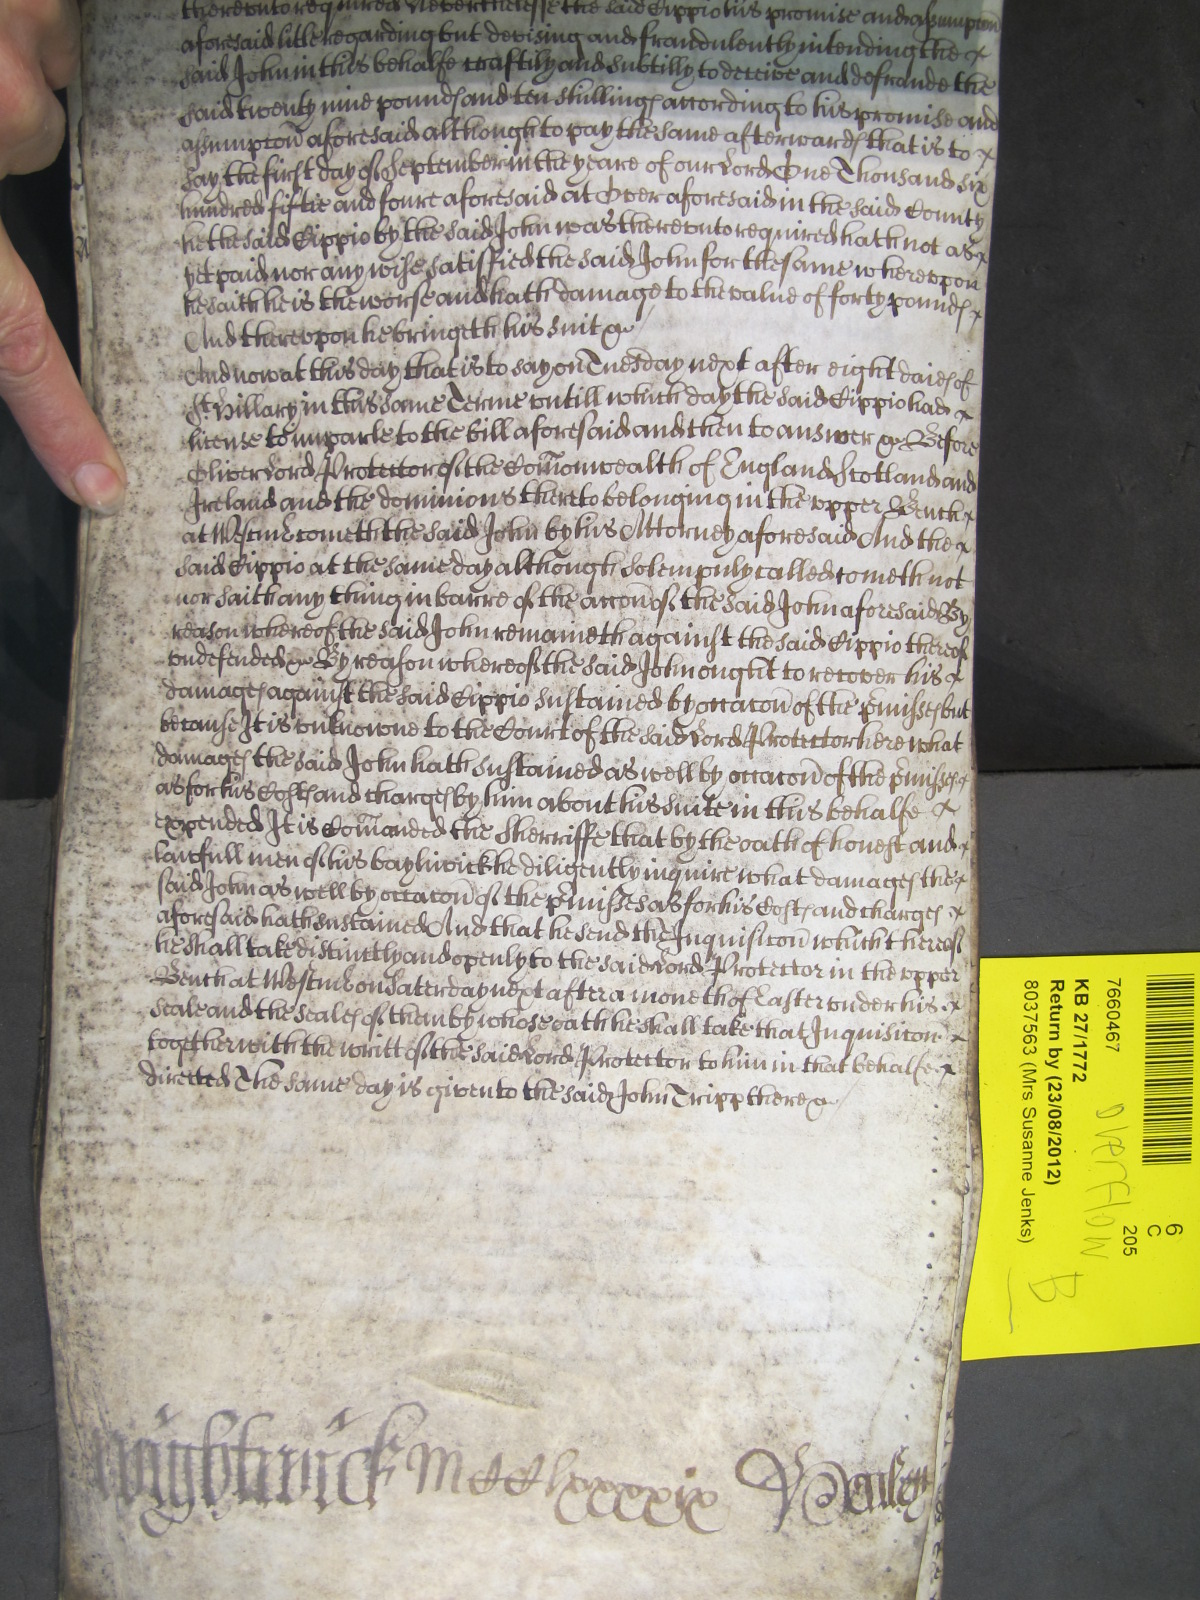 thereunto required Neverthelesse the said Cippio his promise and assumpcon
aforesaid litle regarding but devising and fraudulently intending the
said John in this behalfe craftily and subtilly to deceive and defraude the
said twenty nine pounds and ten shillings according to his promise and
assumpcon aforesaid although to pay the same afterwards that is to
say the first day of September in the yeare of our Lord One Thousand six
hundred fiftie and foure aforesaid at Over aforesaid in the said County
he the said Cippio by the said John was thereunto required hath not as
yet paid nor any wise satisfied the said John for the same whereupon
he saith he is the worse and hath damage to the value of forty pounds
And thereupon he bringeth his suit &
And now at this day that is to say on Tuesday next after eight daies of
St. Hillary in this same Terme untill which day the said Cippio had
license to imparle to the bill aforesaid and then to answer & Before
Oliver Lord Protector of the Comonwealth of England Scotland and
Ireland and the dominions thereto belonging in the upper Bench
at Westmr cometh the said John by his Attorney aforesaid And the
said Cippio at the same day although solempnly called cometh not
nor saith any thing in barre of the accon of the said John aforesaid By
reason whereof the said John remaineth against the said Cippio thereof
undefended & By reason whereof the said John ought to recover his
damages against the said Cippio sustained by occacon of the pmisses but
because It is unknowne to the Court of the said Lord Protector here what
damages the said John hath sustained as well by occacon of the pmisses
as for his Costs and charges by him about his suite in this behalfe
expended It is Comanded the Sherriffe that by the oath of honest and
lawfull men of his bayliwick he diligently inquire what damages the
said John as well by occacon of the pmisses as for his Costs and charges
aforesaid hath sustained And that he send the Inquisicon which thereof
he shall take distinctly and openly to the said Lord Protector in the upper
Bench at Westmr on Saterday next after a moneth of Easter under his
seale and the seales of them by whose oath he shall take that Inquisicon
together with the writt of the said Lord Protector to him in that behalfe
directed The same day is given to the said John Tripp there &
Wightwick Mcclxxxxix Henley
7660467
KB 27/1772
Return by (23/08/2012)
8037563 (Mrs Susanne Jenks)
6
C
205
overflow
B